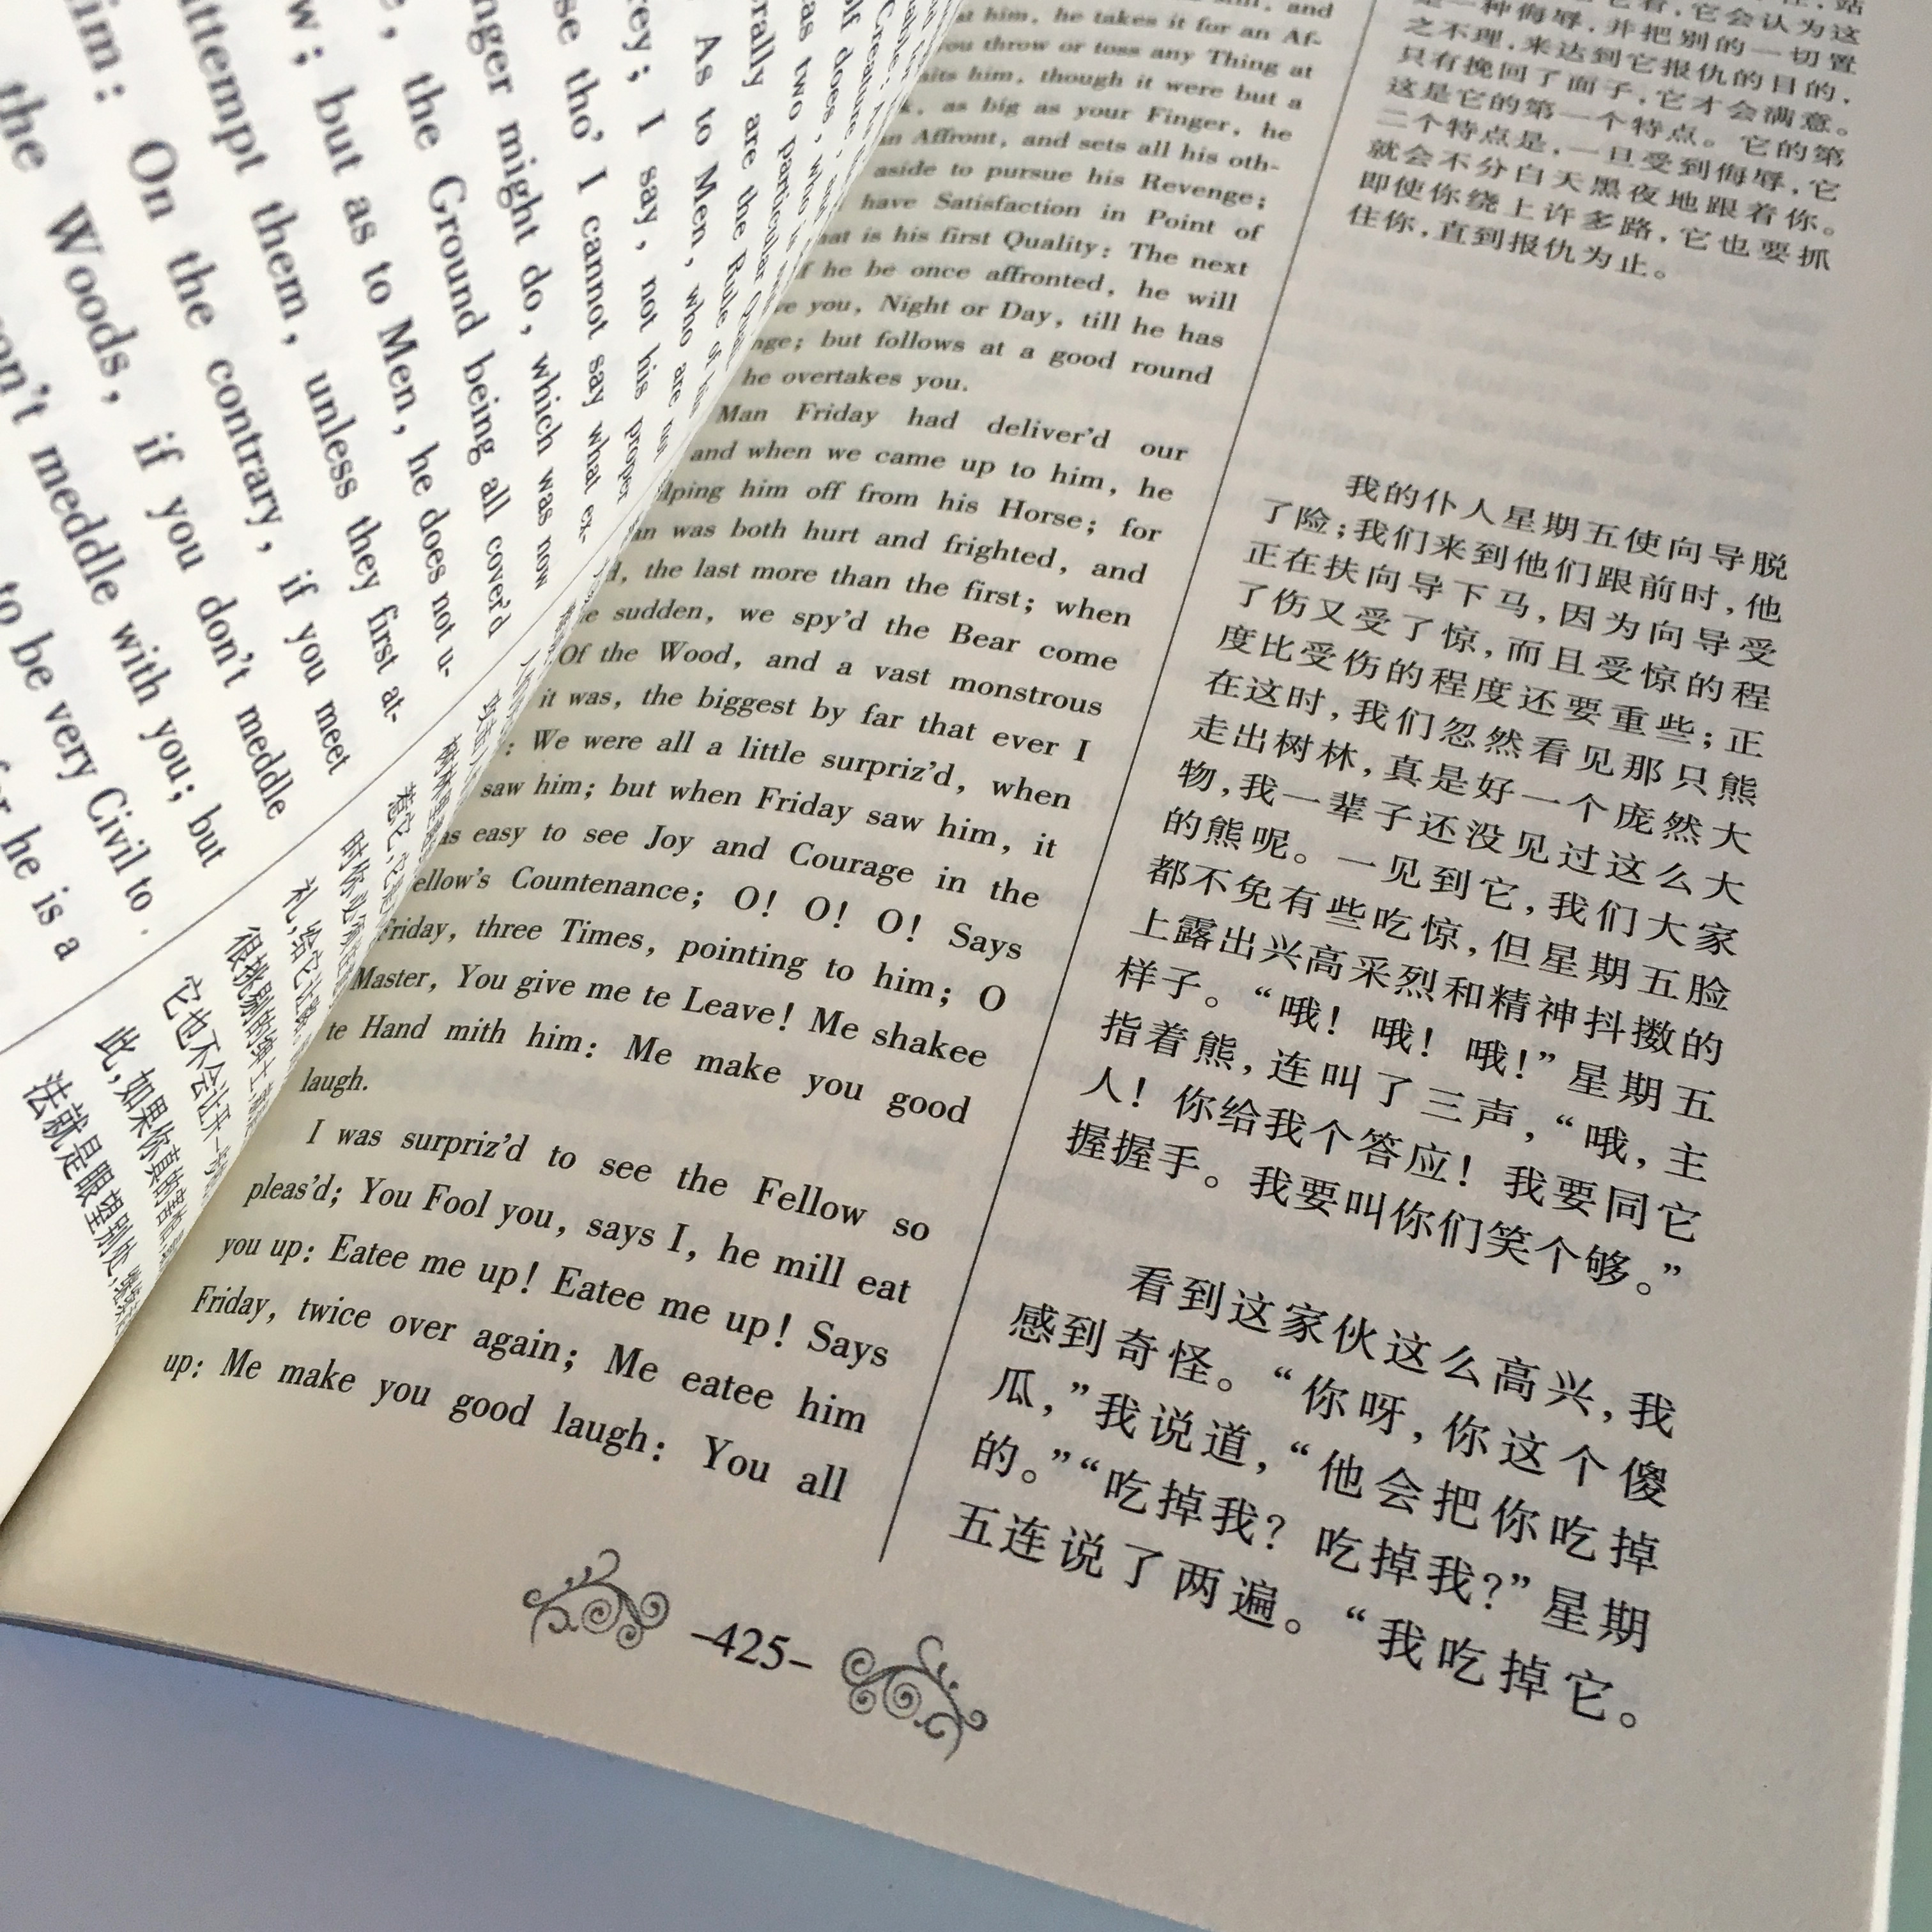 him: On the contrary, if you meet
the Woods, if you don't meddle
don't meddle with you; but
to be very Civil to
for he is a
attempt them, unless they first at-
but as to Men, he does not u-
the Ground being all cover'd
might do, which was now
tho' I cannot say what ex-
I say, not his proper
As to Men, who are not
are the Rule of his
as two particular
法就是眼望别处,继续
此,如果你真的害怕
它也不会让开一步
at him, he takes it for an Af-
you throw or toss any Thing at
him, though it were but a
as big as your Finger, he
an Affront, and sets all his oth-
aside to pursue his Revenge;
have Satisfaction in Point of
that is his first Quality: The next
if he be once affronted, he will
you, Night or Day, till he has
but follows at a good round
he overtakes you.
Man Friday had deliver'd our
and when we came up to him, he
him off from his Horse; for
was both hurt and frighted, and
the last more than the first; when
sudden, we spy'd the Bear come
Of the Wood, and a vast monstrous
it was, the biggest by far that ever I
: We were all a little surpriz'd, when
saw him; but when Friday saw him, it
easy to see Joy and Courage in the
Fellow's Countenance; O! O! O! Says
Friday, three Times, pointing to him; O
Master, You give me te Leave! Me shakee
te Hand mith him: Me make you good
laugh.
I was surpriz'd to see the Fellow so
pleas'd; You Fool you, says I, he mill eat
you up: Eatee me up! Eatee me up! Says
Friday, twice over again; Me eatee him
up: Me make you good laugh: You all
是一种侮辱,并把别的一切置
之不理,来达到它报仇的目的,
只有挽回了面子,它才会满意。
这是它的第一个特点。它的第
二个特点是,一旦受到侮辱,它
就会不分白天黑夜地跟着你。
即使你绕上许多路,它也要抓
住你,直到报仇为止。
我的仆人星期五使向导脱
了险;我们来到他们跟前时,他
正在扶向导下马,因为向导受
了伤又受了惊,而且受惊的程
度比受伤的程度还要重些;正
在这时,我们忽然看见那只熊
走出树林,真是好一个庞然大
物,我一辈子还没见过这么大
的熊呢。一见到它,我们大家
都不免有些吃惊,但星期五脸
上露出兴高采烈和精神抖擞的
样子。“哦! 哦! 哦!”星期五
指着熊,连叫了三声,“哦,主
人! 你给我个答应! 我要同它
握握手。我要叫你们笑个够。”
看到这家伙这么高兴,我
感到奇怪。“你呀,你这个傻
瓜,”我说道,“他会把你吃掉
的。”“吃掉我? 吃掉我?”星期
五连说了两遍。“我吃掉它。
-425-